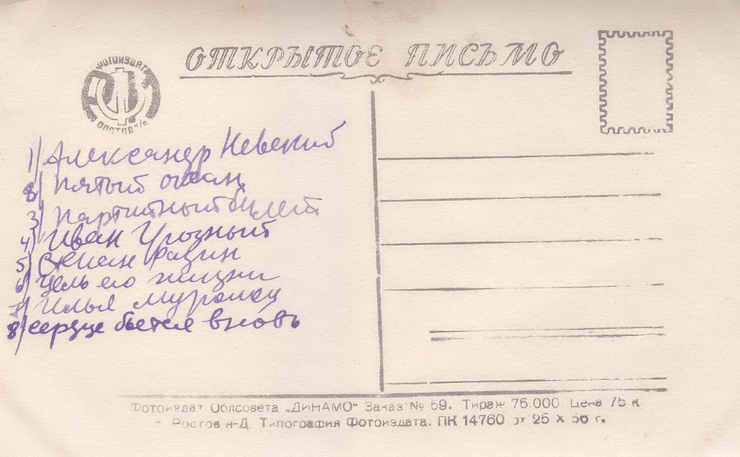 ОТКРЫТОЕ ПИСЬМО
ФОТОИЗДАТ
РОСТОВ н/Д
1) Александр Невский
2) Пятый океан
3) Партийный билет
4) Иван Грозный
5) Степан Разин
6) Цель его жизни
7) Илья Муромец
8) сердце бьется вновь
Фотоиздат Облсовета „ДИНАМО" Заказ № 59. Тираж 75.000 Цена 75 к
г. Ростов н-Д. Типография Фотоиздата. ПК 14760 от 25 X 56 г.